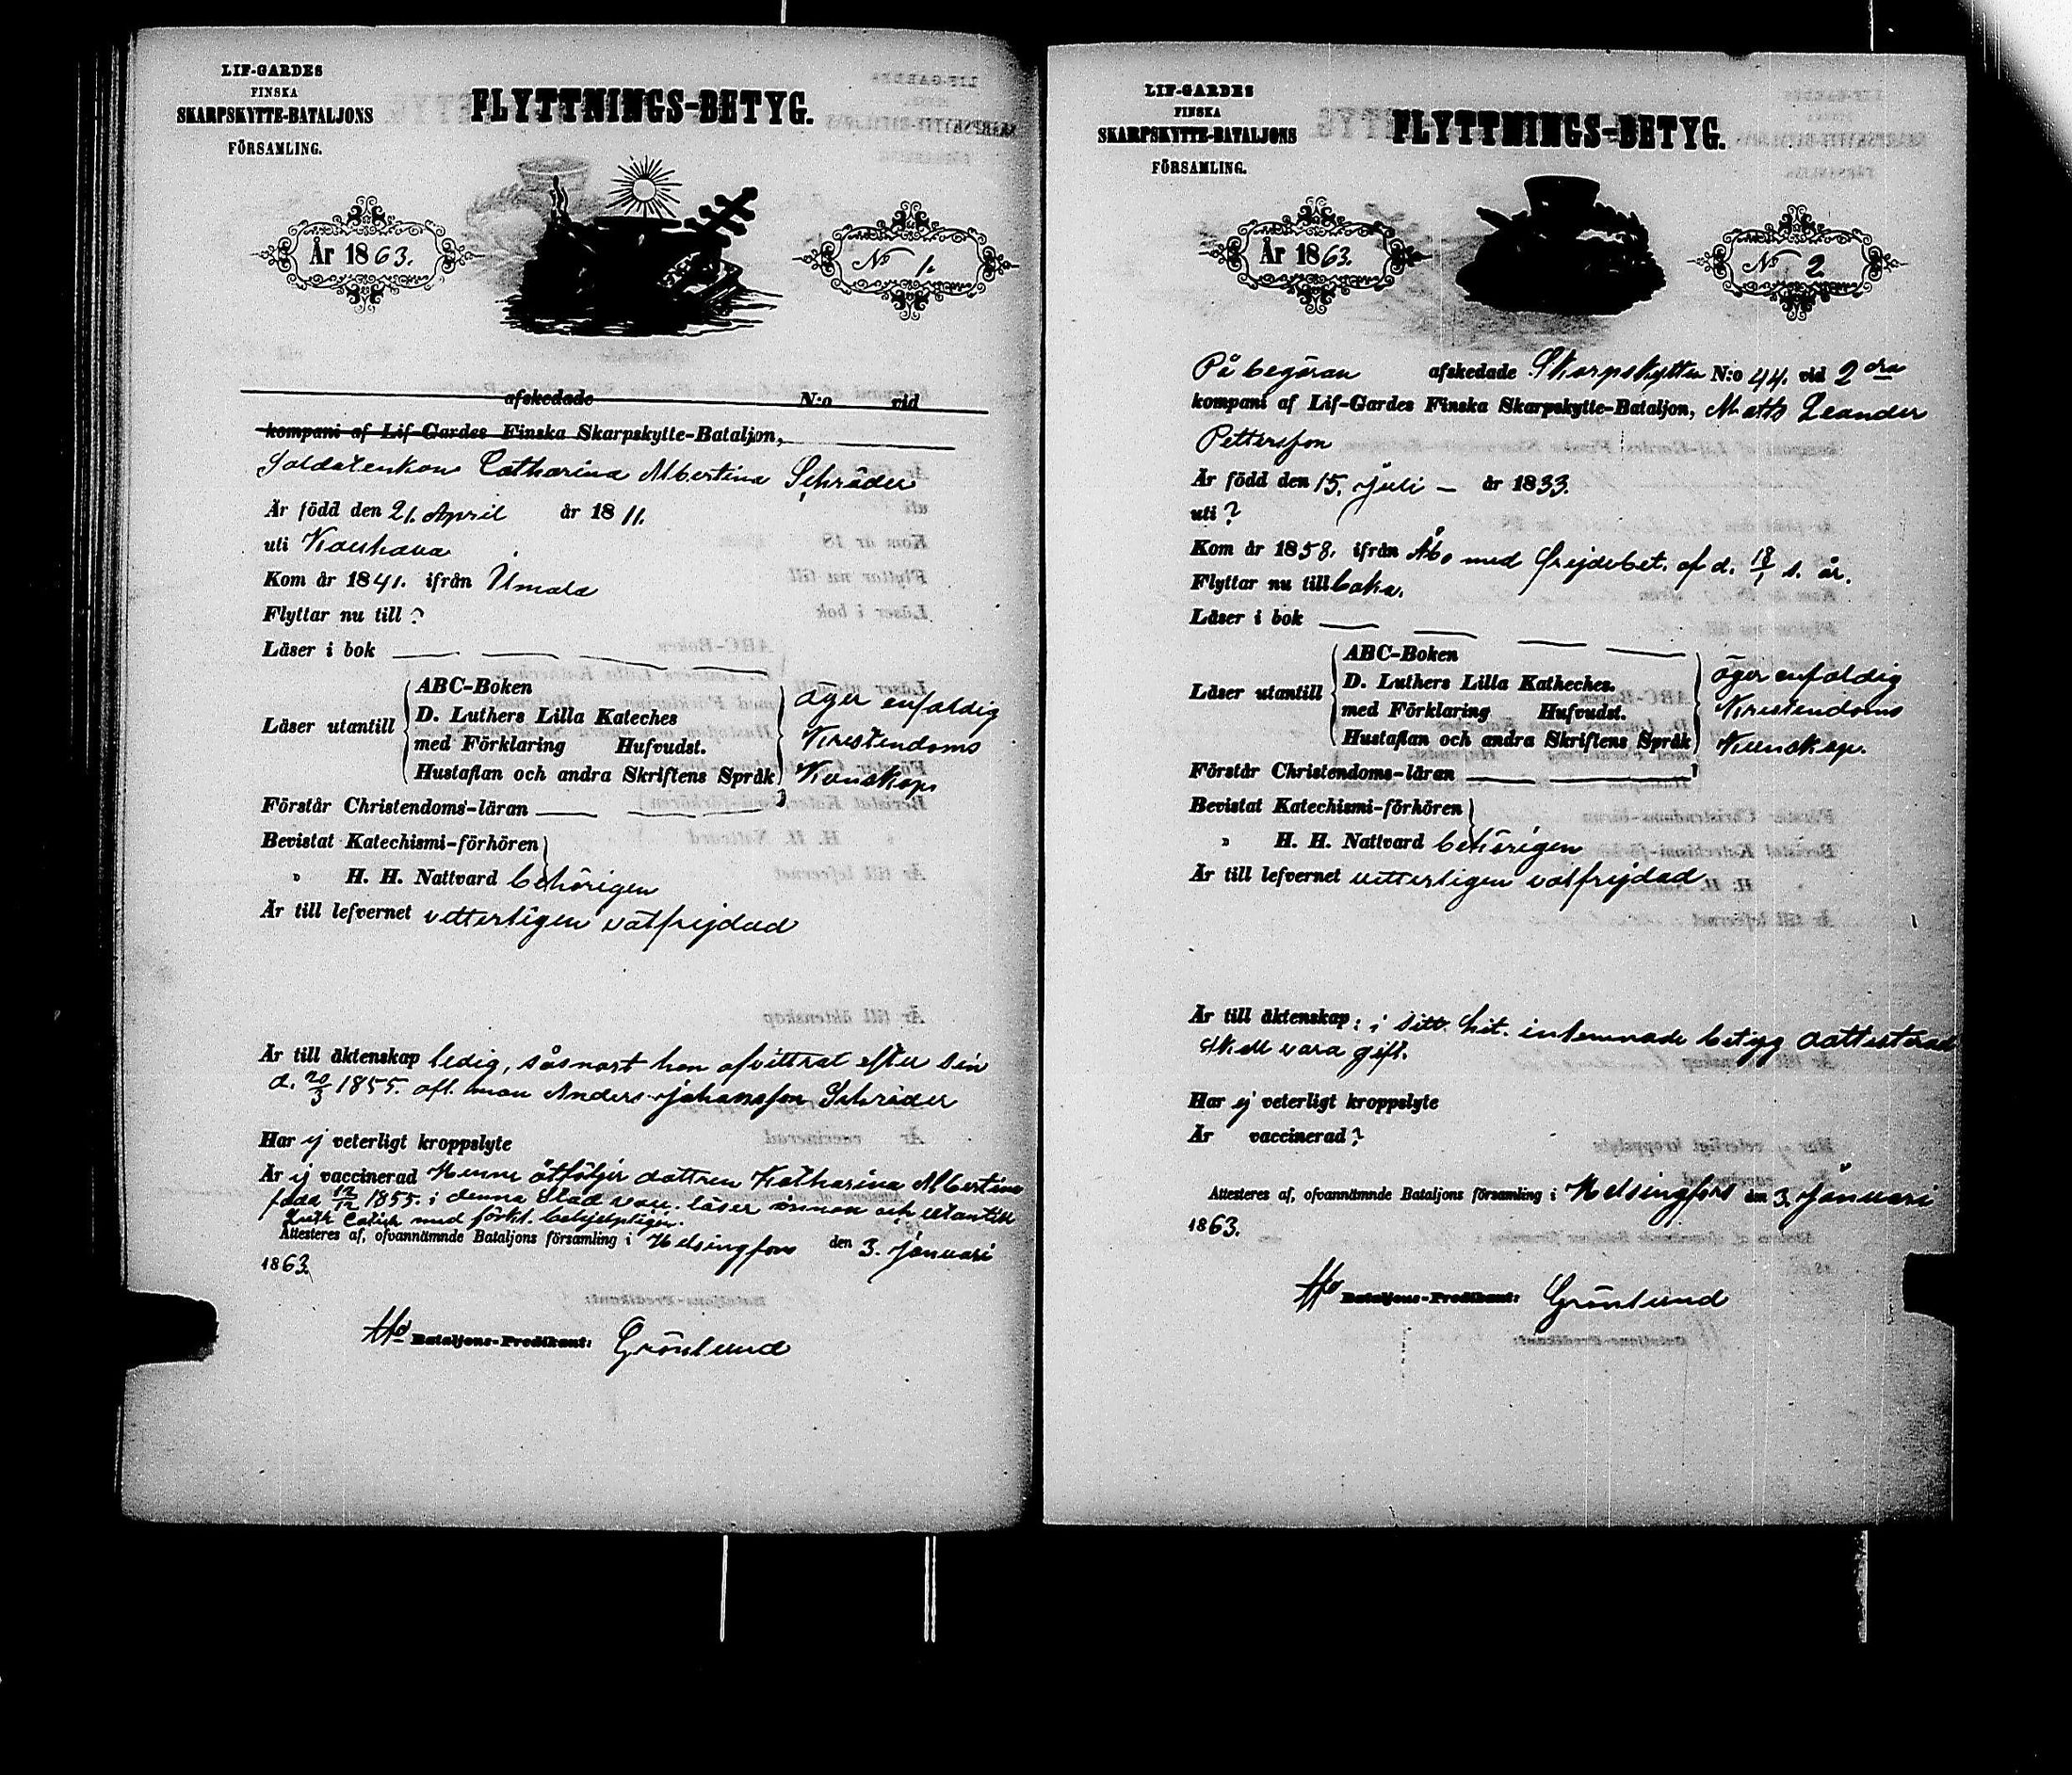 LIF-GARDES
FINSKA
SKARPSKYTTE-BATALJONS
FÖRSAMLING.
FLYTTNINGS-BETYG.
År 1863.
No 1.
afskedade N:o vid
kompani af Lif-Gardes Finska Skarpskytte-Bataljon,
Soldatenkan Catharina Albertina Schräder
Är född den 21. April år 1811.
uti Kauhava
Kom år 1841. ifrån Umala
Flyttar nu till ?
Läser i bok
Läser utantill
ABC-Boken
D. Luthers Lilla Kateches
med Förklaring Hufvudst.
Hustaflan och andra Skriftens Språk
äger enfaldig
Kristendoms
Kunskap
Förstår Christendoms-läran
Bevistat Katechismi-förhören
" H. H. Nattvard behörigen
Är till lefvernet vetterligen välfrejdad
Är till äktenskap ledig, såsnart hon afvittrat efter sin
d. 20/3 1855. afl. man Anders Johansson Schräder
Har ej veterligt kroppslyte
Är ej vaccinerad Henne åtföljer dottren Katharina Albertina
född 12/12 1855. i denna Stad läser innan och utantill
Luth. Catich med förkl. behjelpligen.
Attesteres af, ofvannämnde Bataljons församling i Helsingfors den 3. Januari
1863.
Bataljons-Predikant: Grönlund
LIF-GARDES
FINSKA
SKARPSKYTTE-BATALJONS
FÖRSAMLING.
FLYTTNINGS-BETYG.
År 1863.
No 2
På begäran afskedade Skarpskytten N:o 44. vid 2dra
kompani af Lif-Gardes Finska Skarpskytte-Bataljon, Matts Leander
Pettersson
Är född den 15. Juli – år 1833.
uti ?
Kom år 1858. ifrån Åbo med frejdebet. af d. 18/1 s. år.
Flyttar nu tillbaka.
Läser i bok
Läser utantill
ABC-Boken
D. Luthers Lilla Katheches.
med Förklaring Hufvudst.
Hustaflan och andra Skriftens Språk
äger enfaldig
Kristendoms
Kunskap.
Förstår Christendoms-läran
Bevistat Katechismi-förhören
" H. H. Nattvard behörigen
Är till lefvernet vetterligen välfrejdad
Är till äktenskap: i sitt hit. inlemnade betyg
skall vara gift.
Har ej veterligt kroppslyte
Är vaccinerad ?
Attesteres af, ofvannämnde Bataljons församling i Helsingfors den 3. Januari
1863.
Bataljons-Predikant: Grönlund